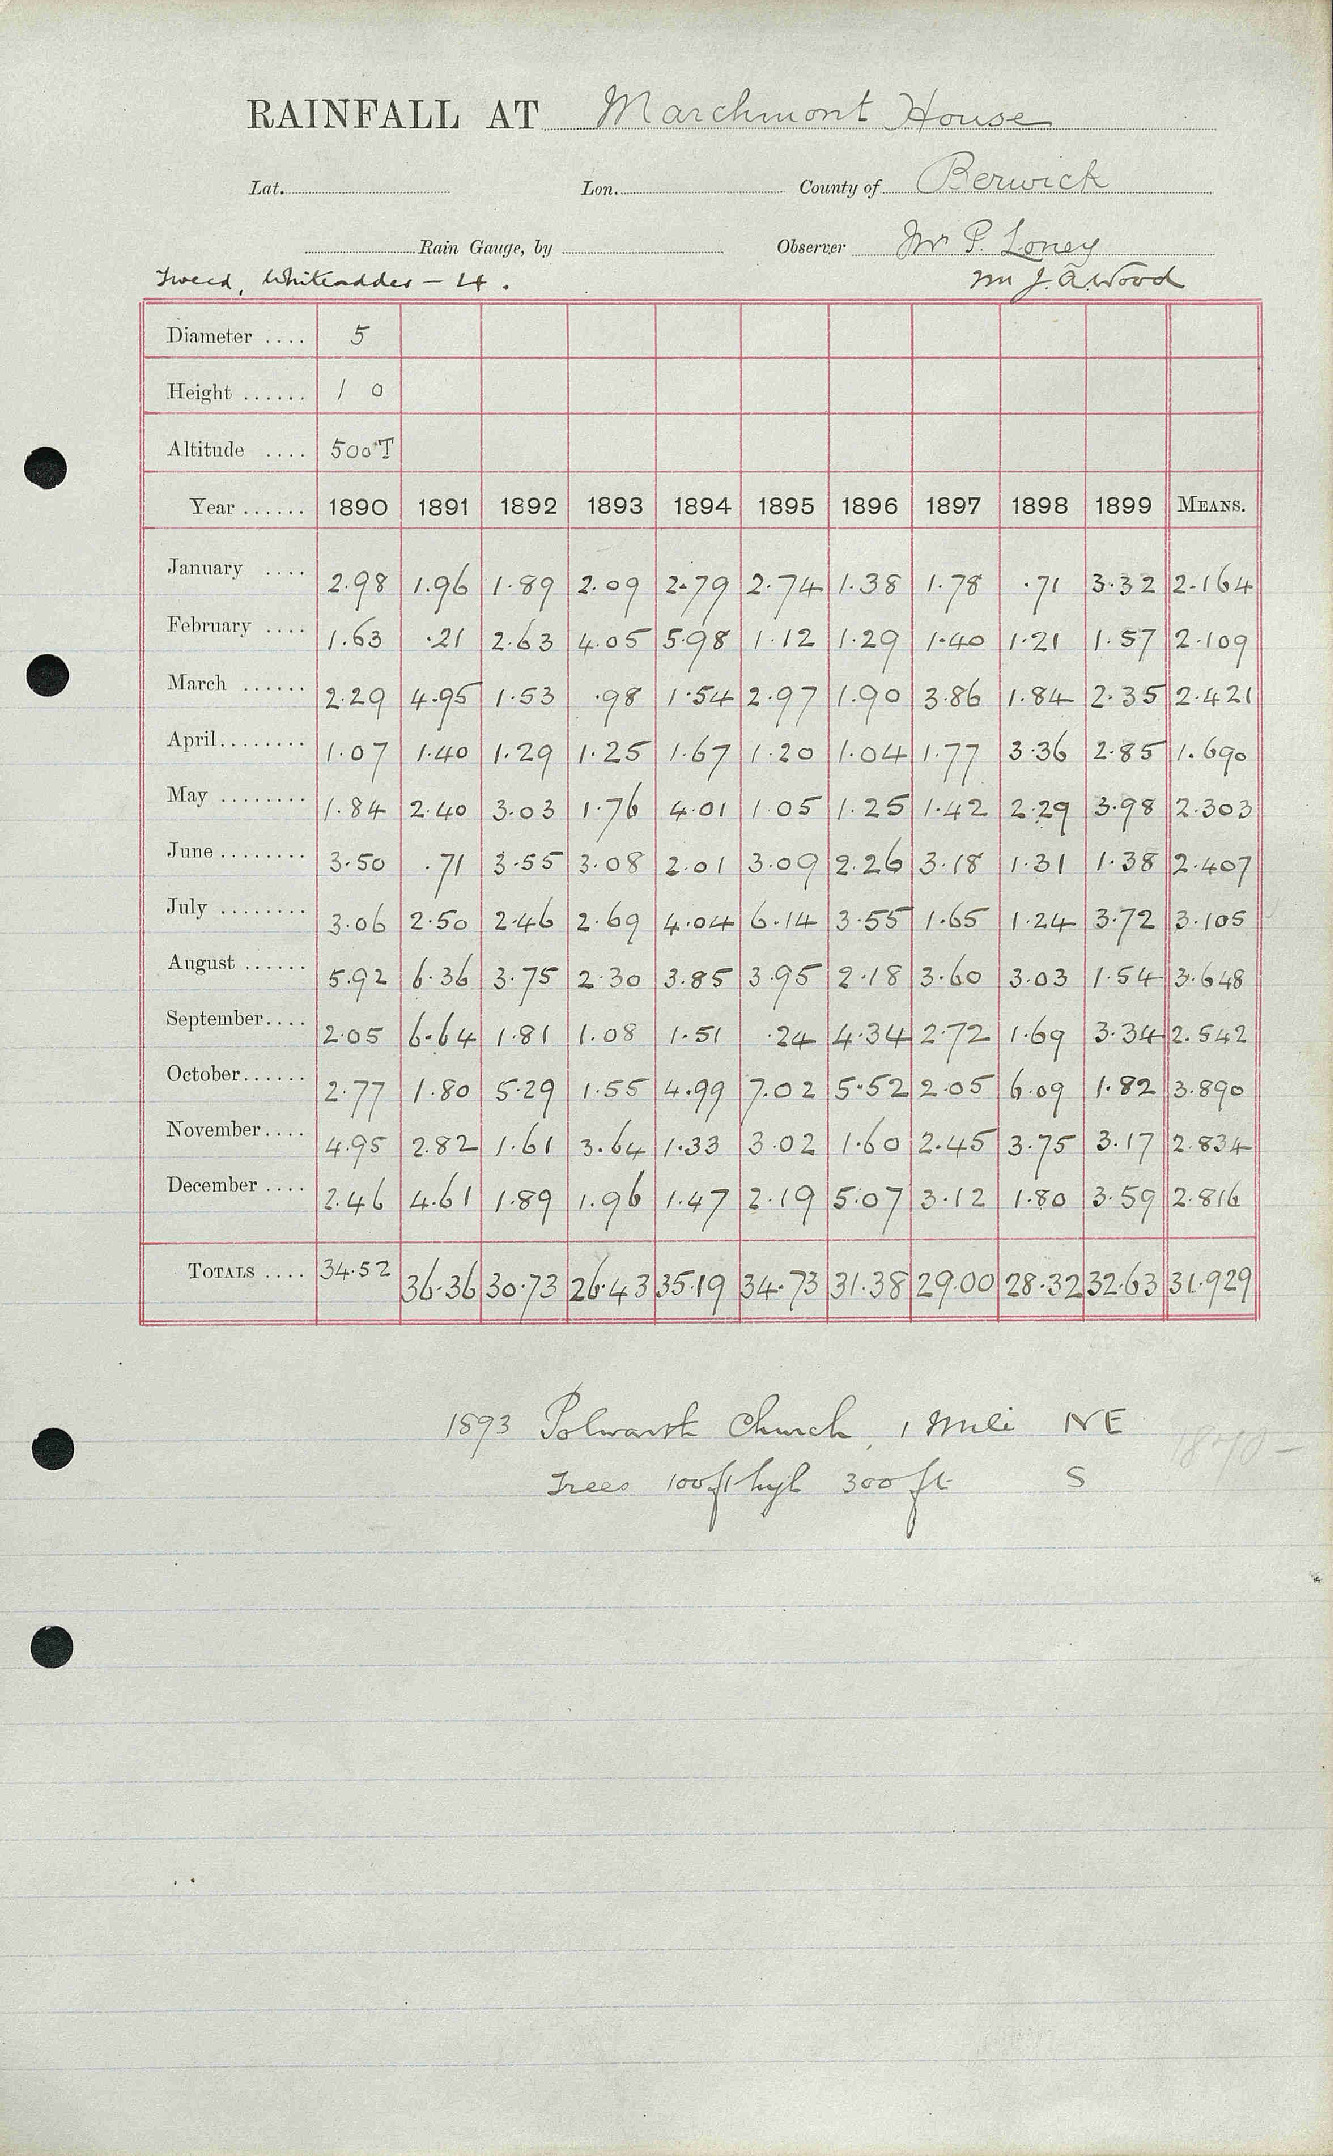 RAINFALL AT Marchmont House
Lat. Lon. County of Berwick
Rain Gauge, by Observer Mr P. Loney
Tweed, Whiteadder – 4. Mr J. A Wood
Diameter .... 5
Height ...... 1 0
Altitude .... 500 T
Year ...... 1890 1891 1892 1893 1894 1895 1896 1897 1898 1899 MEANS.
January .... 2.98 1.96 1.89 2.09 2.79 2.74 1.38 1.78 .71 3.32 2.164
February .... 1.63 .21 2.63 4.05 5.98 1.12 1.29 1.40 1.21 1.57 2.109
March ...... 2.29 4.95 1.53 .98 1.54 2.97 1.90 3.86 1.84 2.35 2.421
April........ 1.07 1.40 1.29 1.25 1.67 1.20 1.04 1.77 3.36 2.85 1.690
May ........ 1.84 2.40 3.03 1.76 4.01 1.05 1.25 1.42 2.29 3.98 2.303
June ........ 3.50 .71 3.55 3.08 2.01 3.09 2.26 3.18 1.31 1.38 2.407
July ........ 3.06 2.50 2.46 2.69 4.04 6.14 3.55 1.65 1.24 3.72 3.105
August ...... 5.92 6.36 3.75 2.30 3.85 3.95 2.18 3.60 3.03 1.54 3.648
September.... 2.05 6.64 1.81 1.08 1.51 .24 4.34 2.72 1.69 3.34 2.542
October...... 2.77 1.80 5.29 1.55 4.99 7.02 5.52 2.05 6.09 1.82 3.890
November.... 4.95 2.82 1.61 3.64 1.33 3.02 1.60 2.45 3.75 3.17 2.834
December .... 2.46 4.61 1.89 1.96 1.47 2.19 5.07 3.12 1.80 3.59 2.816
TOTALS .... 34.52 36.36 30.73 26.43 35.19 34.73 31.38 29.00 28.32 32.63 31.929
1893 Polwarth Church, 1 Mile NE
Trees 100 ft high 300 ft S